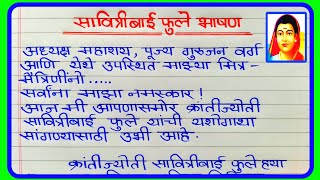 सावित्रीबाई फुले भाषण
अध्यक्ष महाशय, पूज्य गुरुजन वर्ग
आणि येथे उपस्थित माझ्या मित्र-
मैत्रिणींनो.....
सर्वांना माझा नमस्कार !
आज मी आपणासमोर क्रांतीज्योती
सावित्रीबाई फुले यांची यशोगाथा
सांगण्यासाठी उभी आहे.
क्रांतीज्योती सावित्रीबाई फुले ह्या